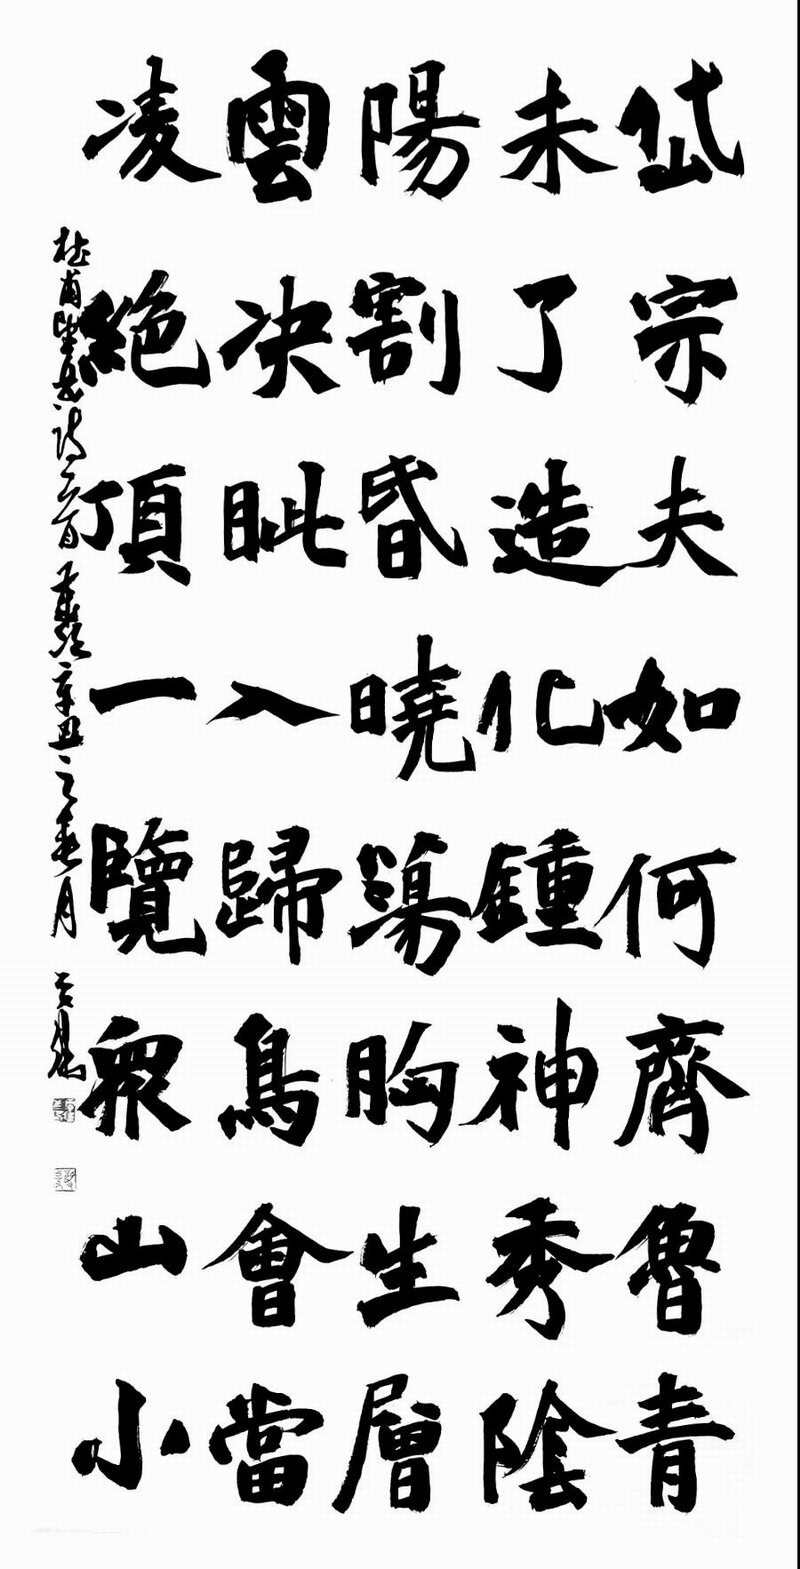 岱宗夫如何齊魯青
未了造化鍾神秀陰
陽割昏曉蕩胸生層
雲決眦入歸鳥會當
凌絕頂一覽衆山小
杜甫望岳詩一首 辛丑之春月